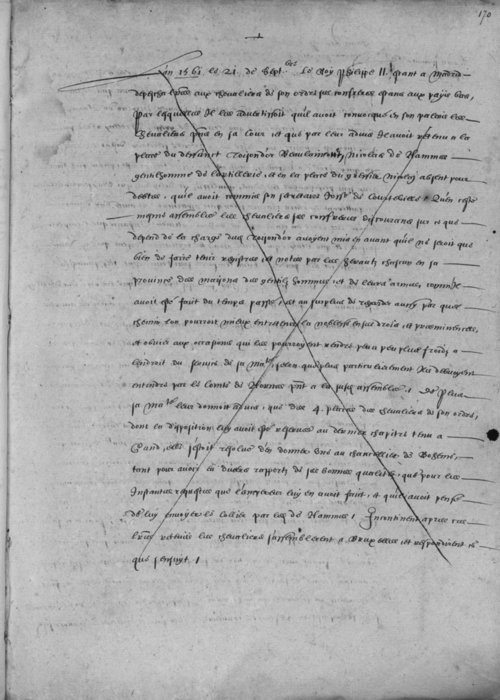 170
En 1561 le 21 de Septbre Le Roy Philippe II. estant a Madrid
depescha lettres aux chevaliers de son ordre ses confreres estans aux pays bas,
par lesquelles il les advertissoit qu'il avoit convocqué en son palais les
Chevaliers estans en sa cour et que par leur advis il avoit retenu a la
place du deffunct Toison d'or Beaulaincourt, Nicolas de Hammes
gentilhomme de l'artillerie, et en la place du greffier Nicolaj absent pour
debtes, qu'il avoit commis son secretaire Josse de Courteville. Qu'en ceste
mesme assemblee les chevaliers ses confreres discourans sur ce que
depend de la charge dudit Toison d'or avoyent mis en avant qu'il ne seroit que
bien de faire tenir registres et notes par les heraulx chascun en sa
province des maisons des gentilz hommes et de leurs armes, comme il
avoit esté fait du temps passé, et au surplus de regarder aussy par quel
chemin l'on pourroit mieux entretenir la noblesse en ses droits et preeminences,
et obvier aux occasions qui les pourroyent rendre peu a peu plus froids a
l'endroit du service de sa Maté, selon que plus particulierement ilz debvoyent
entendre par le Comte de Hornes pnt a la susdite assemblee. De plus
sa Maté leur donnoit advis, que des 4. places des chevaliers de son ordre,
dont la disposition luy avoit esté reservee au dernier chapitre tenu a
Gand, elle s'estoit resolue d'en donner une au chancellier de Boheme,
tant pour avoir eu divers rapports de ses bonnes qualitez, que pour les
instantes requestes que l'Empereur luy en avoit fait, et qu'il avoit pensé
de luy envoyer le collier par led. de Hammes. Incontinent apres ces
lettres receues les chevaliers s'assemblerent a Bruxelles et respondirent ce
que s'ensuyt.